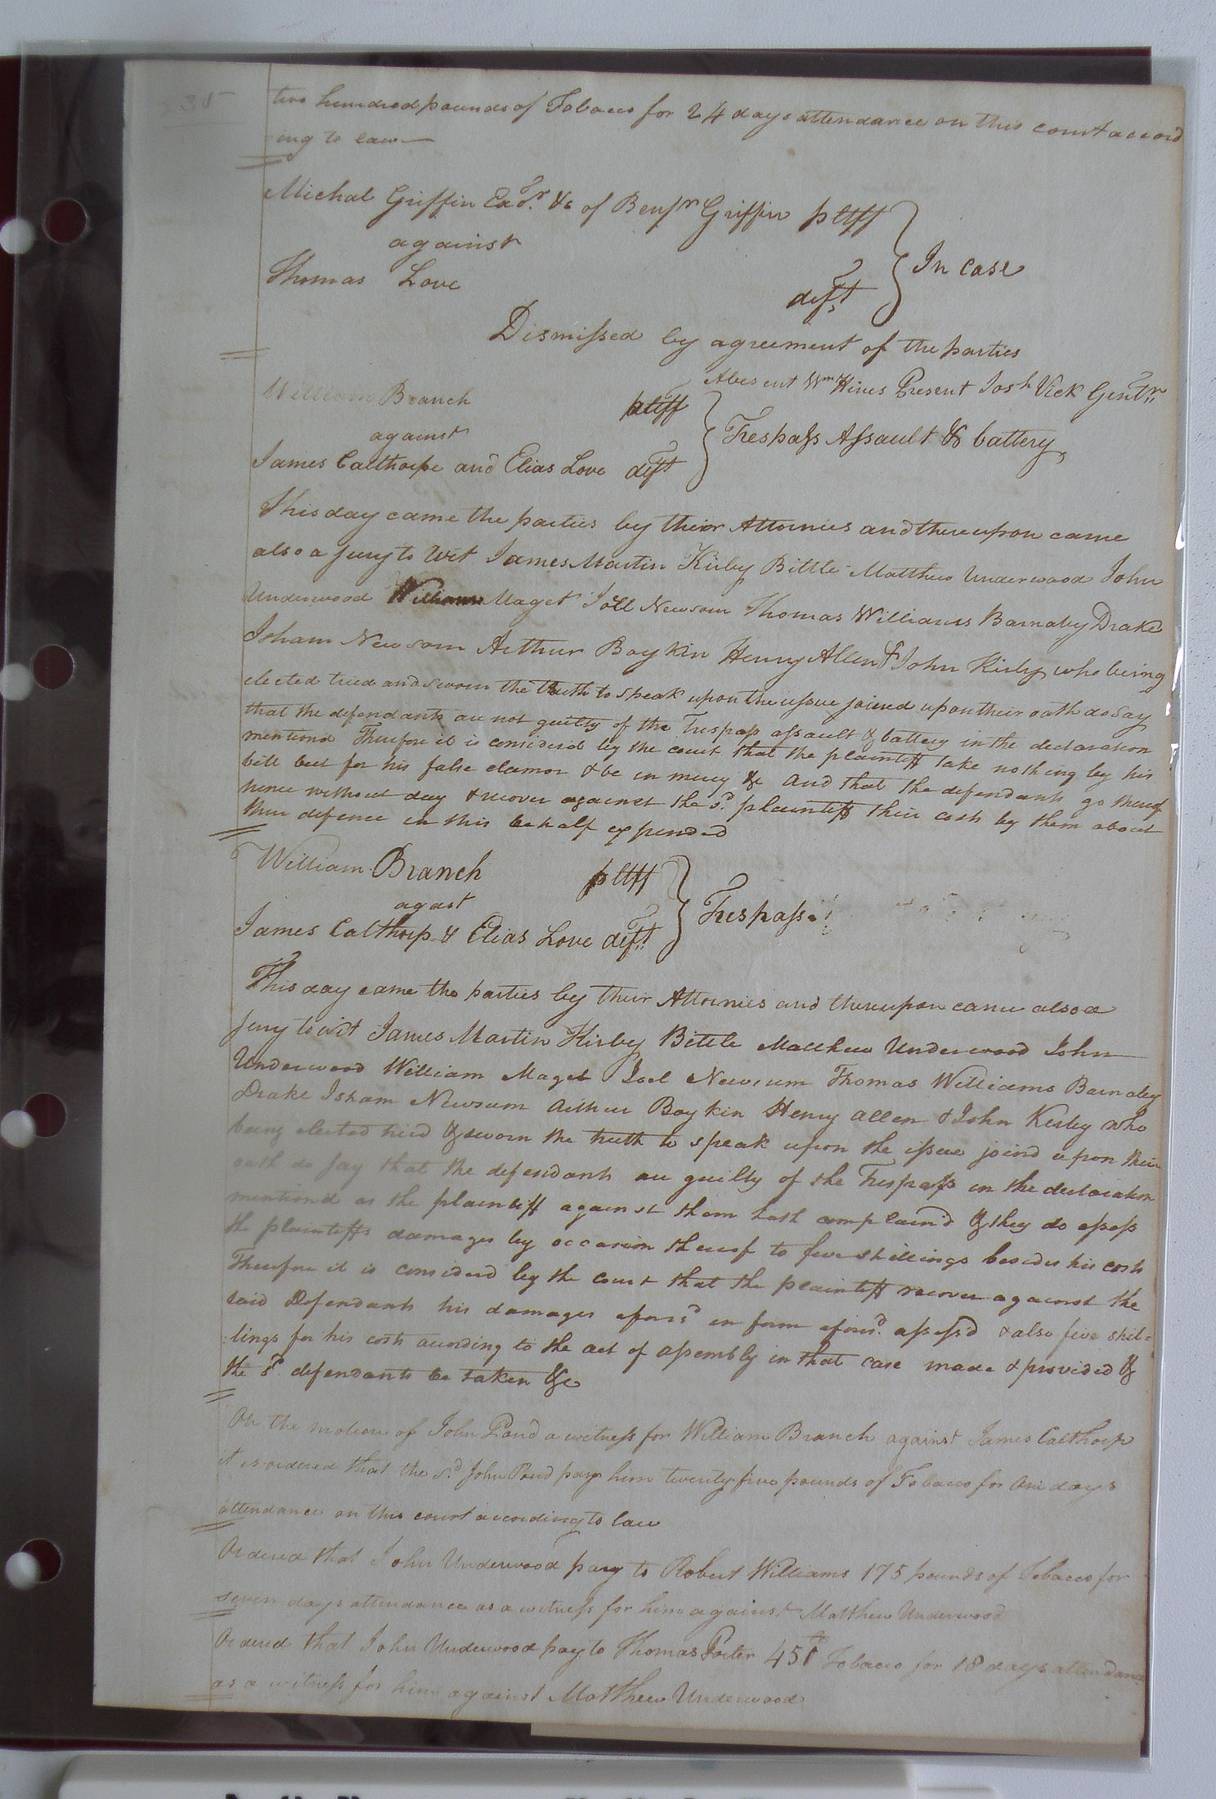 two hundred pounds of Tobacco for 24 days attendance on this court accord
ing to law
Michal Griffin Exor. &c of Benjn Griffin pltff
against
In case
Thomas Love
deft
Dismissed by agreement of the parties
Absent Wm Hines Present Josh Vick Gentn
William Branch pltff
against
Trespass Assault & battery
James Calthorpe and Elias Love deft
This day came the parties by their Attornies and thereupon came
also a Jury to wit James Martin Kirby Bittle Matthew Underwood John
Underwood William Maget Joll Newsom Thomas Williams Barnaby Drake
Isham Newsom Arthur Boykin Henry Allen & John Kirby who being
elected tried and sworn the truth to speak upon the issue joined upon their oath do say
that the defendants are not guilty of the Trespass assault & battery in the declaration
mentiond Therefore it is considerd by the court that the plaintiff take nothing by his
bill but for his false clamor & be in mercy &c And that the defendants go thereof
hence without day & recover against the sd. plaintiff their costs by them about
their defence in this behalf expended
William Branch pltff
agast
Trespass
James Calthorp & Elias Love deft
This day came the parties by their Attornies and thereupon came also a
Jury to wit James Martin Kirby Bittle Matthew Underwood John
Underwood William Maget Joel Newsum Thomas Williams Barnaby
Drake Isham Newsum Arthur Boykin Henry Allen & John Kirby who
being elected tried & sworn the truth to speak upon the issue joind upon their
oath do say that the defendants are guilty of the Trespass in the declaration
mentiond as the plaintiff against them hath complaind & they do assess
the plaintiffs damages by occasion thereof to five shillings besides his costs
Therefore it is considerd by the court that the plaintiff recover against the
said Defendants his damages afores'd in form afores'd. assess'd & also five shil-
lings for his costs according to the act of assembly in that case made & provided &
the sd. defendants be taken &c
On the motion of John Pond a witness for William Branch against James Calthorp
it is ordered that the sd John Pond pay him twenty five pounds of Tobacco for one days
attendance on this court according to law
Ordered that John Underwood pay to Robert Williams 175 pounds of Tobacco for
seven days attendance as a witness for him against Matthew Underwood
Ordered that John Underwood pay to Thomas Porter 45 Tobacco for 18 days attendance
as a witness for him against Matthew Underwood